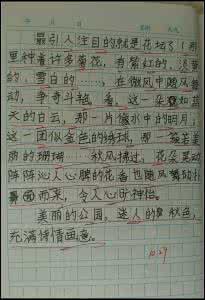 年 月 日
最引人注目的就是花坛了！那
里种着许多菊花，有紫红的、淡黄
的、雪白的……，在微风中随风舞
动，争奇斗艳。看，这一朵像如蓝
天的白云，那一片像水中的明月；
这一团似金色的绣球，那一簇若美
丽的珊瑚……秋风拂过，花朵灵动
阵阵沁人心脾的花香也随风舞动扑
鼻面而来，令人心旷神怡。
美丽的公园，迷人的秋色，
充满诗情画意。
10.29